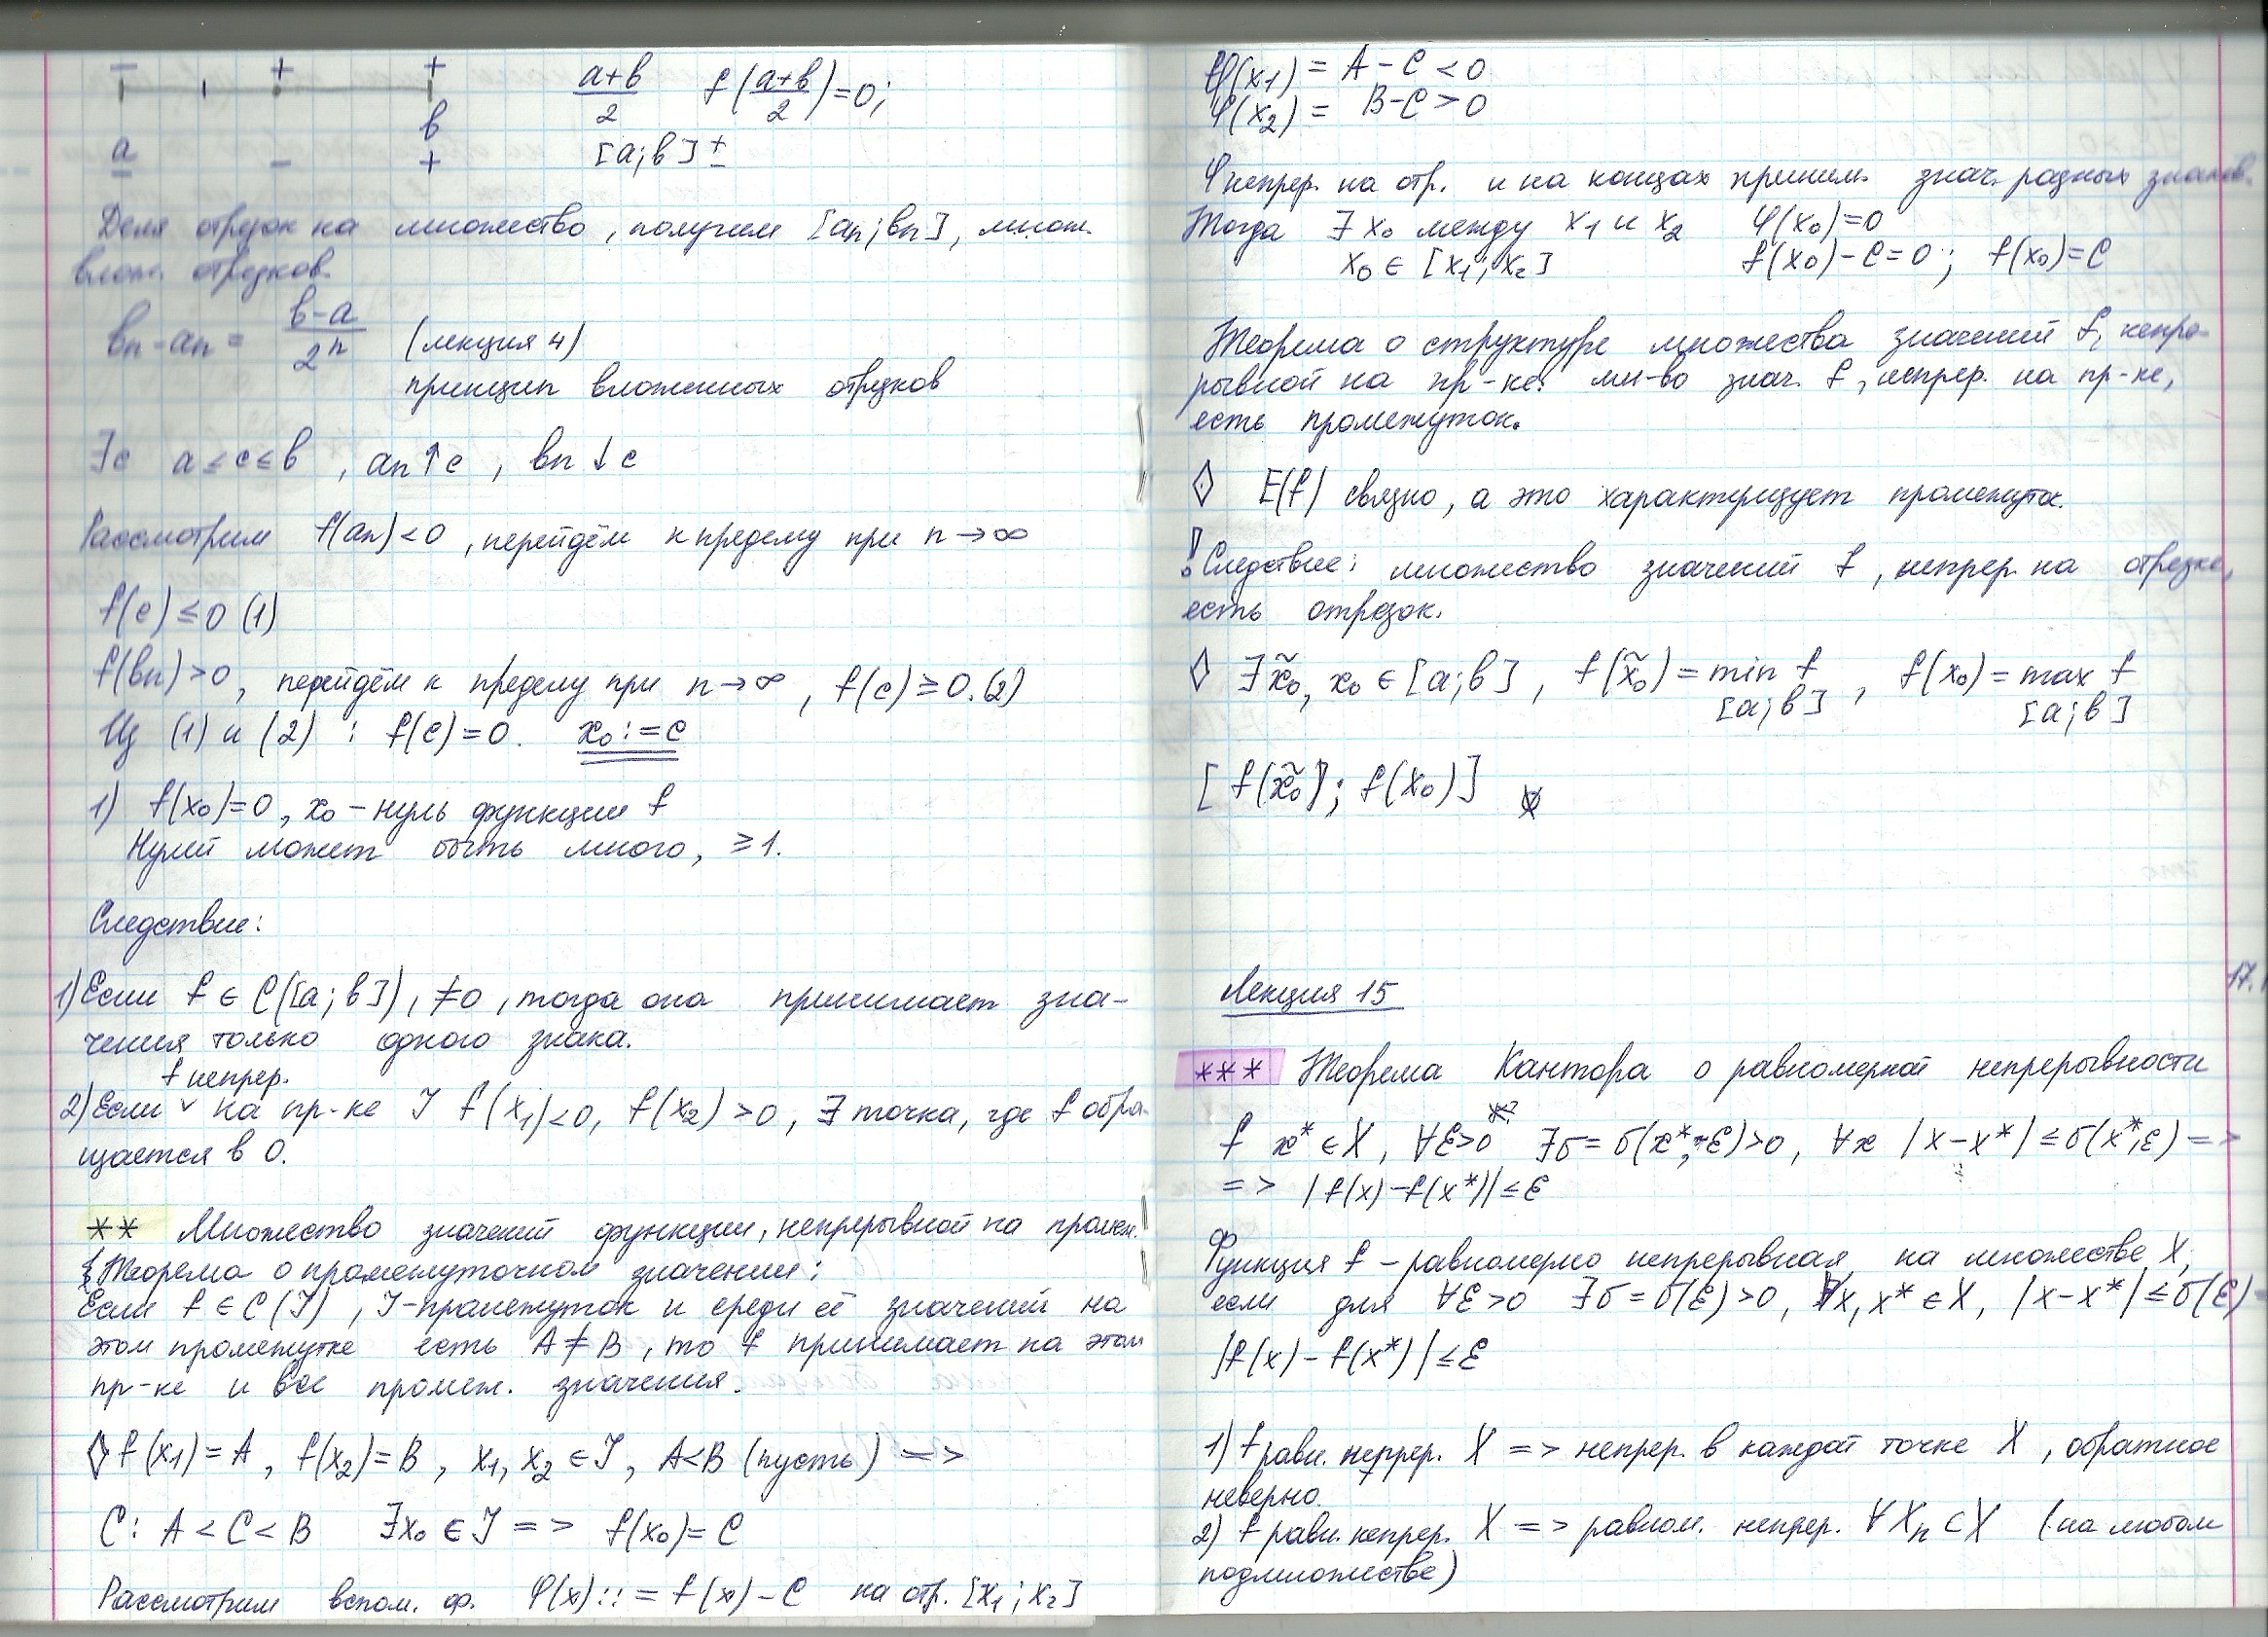 − + +
a+b/2 f(a+b/2)=0;
b
a − + [a;b] ±
Деля отрезок на множество, получим [an;bn], множ.
влож. отрезков.
bn-an = b-a/2^n (лекция 4)
принцип вложенных отрезков
∃c a≤c≤b, an↑c, bn↓c
Рассмотрим f(an)<0, перейдём к пределу при n→∞
f(c)≤0 (1)
f(bn)>0, перейдём к пределу при n→∞, f(c)≥0.(2)
Из (1) и (2): f(c)=0. x₀:=c
1) f(x₀)=0, x₀ – нуль функции f
Нулей может быть много, ≥1.
Следствие:
1) Если f∈C([a;b]), ≠0, тогда она принимает зна-
чения только одного знака.
f непрер.
2) Если ˅ на пр-ке J f(x₁)<0, f(x₂)>0, ∃ точка, где f обра-
щается в 0.
** Множество значений функции, непрерывной на промеж.
Теорема о промежуточном значении:
Если f∈C(J), J-промежуток и среди её значений на
этом промежутке есть A≠B, то f принимает на этом
пр-ке и все промеж. значения.
◊ f(x₁)=A, f(x₂)=B, x₁,x₂∈J, A<B (пусть) =>
C: A<C<B ∃x₀∈J => f(x₀)=C
Рассмотрим вспом. ф. φ(x)::=f(x)-C на отр. [x₁;x₂]
φ(x₁) = A-C<0
φ(x₂) = B-C>0
φ непрер. на отр. и на концах приним. знач. разных знаков.
Тогда ∃x₀ между x₁ и x₂ φ(x₀)=0
x₀∈[x₁;x₂] f(x₀)-C=0; f(x₀)=C
Теорема о структуре множества значений f, непре-
рывной на пр-ке: мн-во знач. f, непрер. на пр-ке,
есть промежуток.
◊ E(f) связно, а это характеризует промежуток.
! Следствие: множество значений f, непрер. на отрезке,
есть отрезок.
◊ ∃x̃₀, x₀∈[a;b], f(x̃₀)=min f, f(x₀)=max f
[a;b] [a;b]
[f(x̃₀); f(x₀)]
17.
Лекция 15
*** Теорема Кантора о равномерной непрерывности
f x*∈X, ∀ε>0 ∃σ=σ(x*,ε)>0, ∀x |x-x*|≤σ(x*,ε) =>
=> |f(x)-f(x*)|≤ε
Функция f – равномерно непрерывная на множестве X,
если для ∀ε>0 ∃σ=σ(ε)>0, ∀x,x*∈X, |x-x*|≤σ(ε) =
|f(x)-f(x*)|≤ε
1) f равн. непрер. X => непрер. в каждой точке X, обратное
неверно.
2) f равн. непрер. X => равном. непрер. ∀Xn⊂X (на любом
подмножестве)